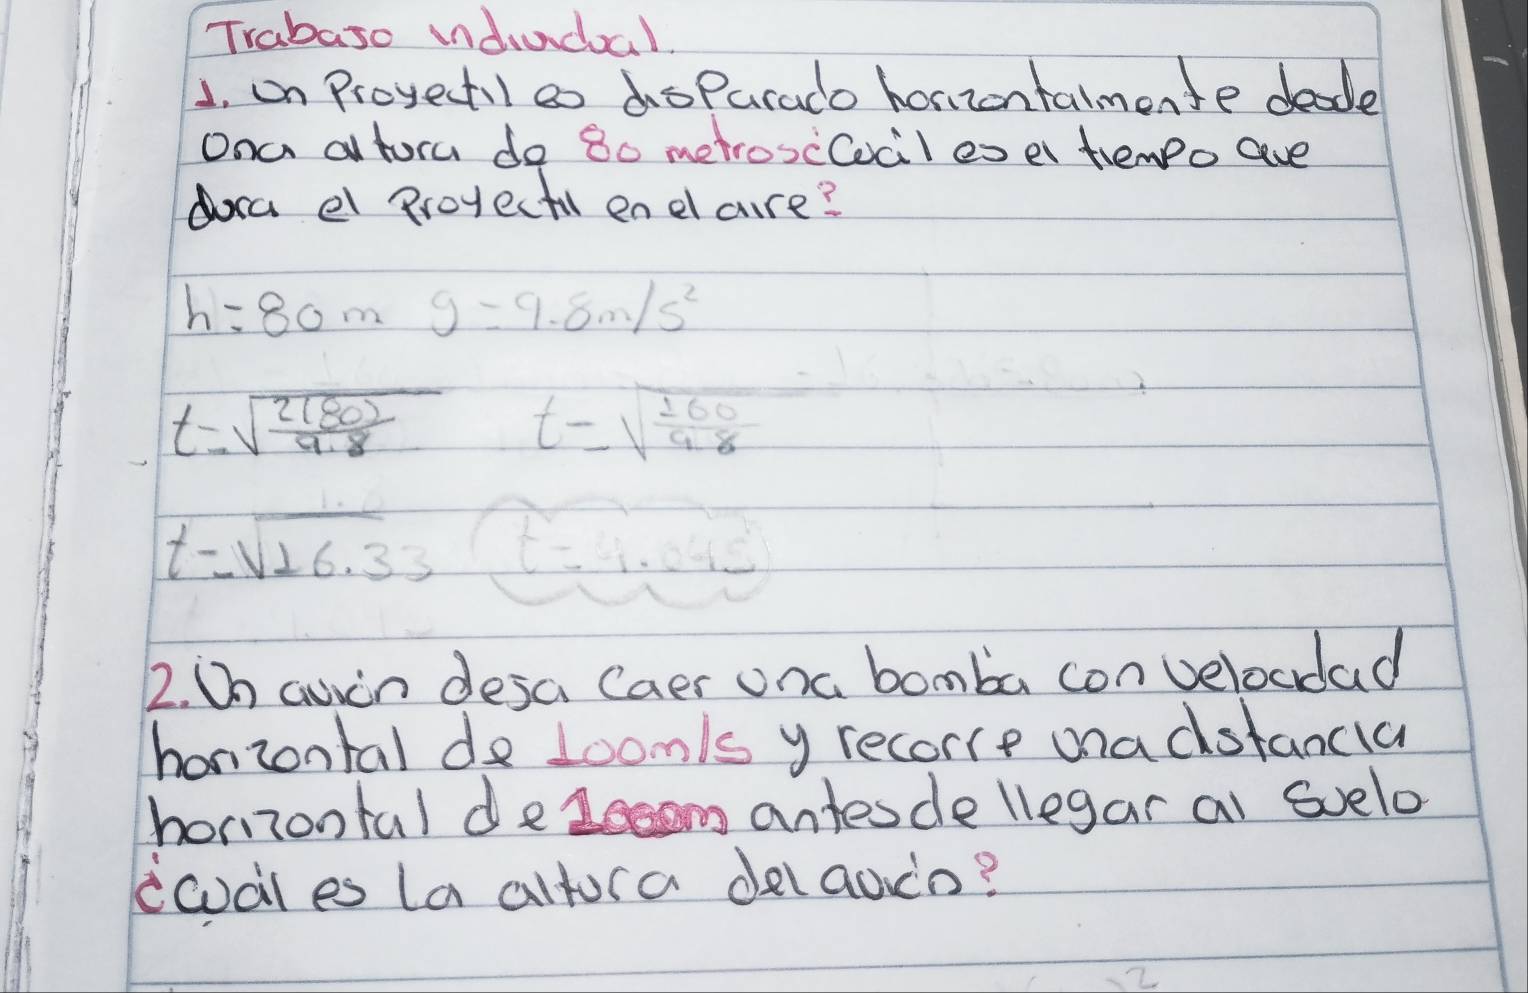 Trabajo individual.
1. Un Proyectil es disparado horizontalmente desde
Una altura de 80 metros ¿Cuál es el tiempo que
dura el Proyectil en el aire?
h=80m g=9.8m/s²
t=√2(80)/9.8 t=√160/9.8
t=√16.33 t=4.04s
2. Un avión deja Caer una bomba con velocidad
horizontal de 100m/s y recorre una distancia
horizontal de 1000m antes de llegar al suelo
¿cuál es la altura del avión?
2